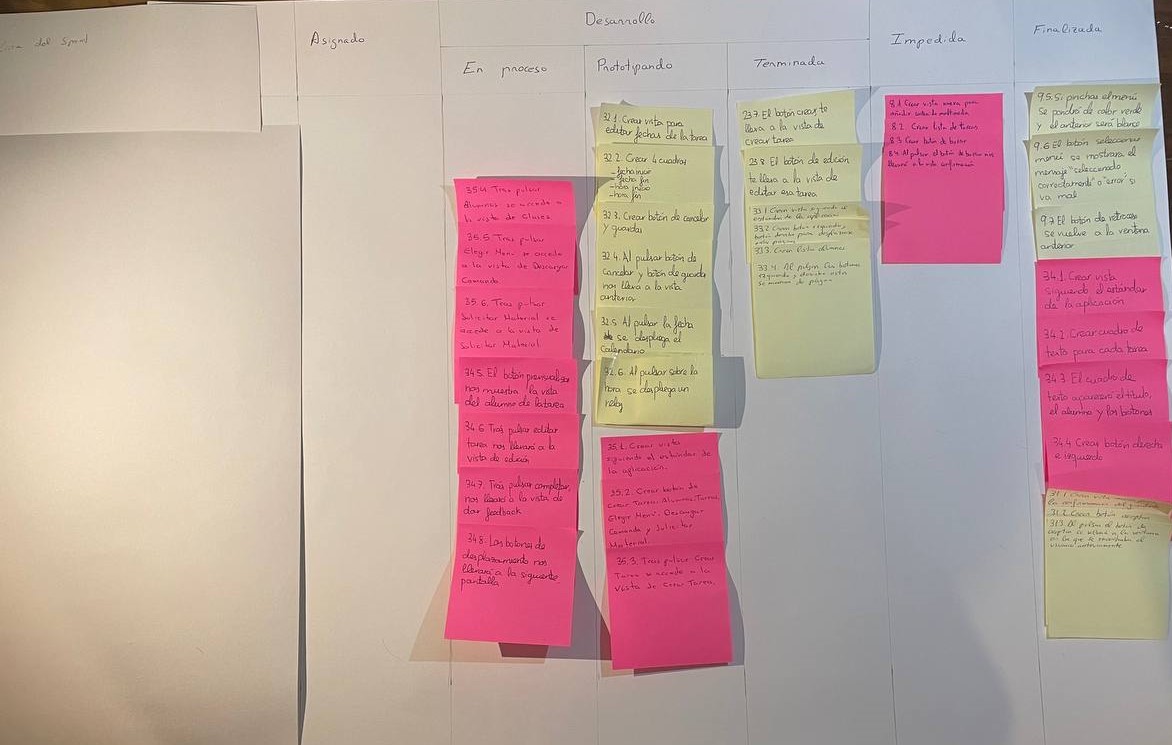 del Sprint
Asignado
Desarrollo
En proceso
Prototipando
Terminada
Impedida
Finalizada
35.4. Tras pulsar
Alumnos se accede a
la vista de Clases
35.5. Tras pulsar
Elegir Menú se accede
a la vista de Descargar
Comanda
35.6. Tras pulsar
Solicitar Material se
accede a la vista de
Solicitar Material
34.5. El botón previsualizar
nos muestra la vista
del alumno de la tarea
34.6 Tras pulsar editar
tarea nos llevará a la
vista de edición
34.7. Tras pulsar completar,
nos llevará a la vista de
dar feedback
34.8. Los botones de
desplazamiento nos
llevará a la siguiente
pantalla
32.1. Crear vista para
editar fechas de la tarea
32.2. Crear 4 cuadros
- fecha inicio
- fecha fin
- hora inicio
- hora fin
32.3. Crear botón de cancelar
y guardar
32.4. Al pulsar botón de
cancelar y botón de guardar
nos lleva a la vista
anterior
32.5 Al pulsar la fecha
se despliega el
Calendario
32.6. Al pulsar sobre la
hora se despliega un
reloj
35.1. Crear vista
siguiendo el estándar de
la aplicación.
35.2. Crear botón de
Crear Tarea, Alumnos, Tarea,
Elegir Menú, Descargar
Comanda y Solicitar
Material.
35.3. Tras pulsar Crear
Tarea se accede a la
vista de Crear Tarea.
23.7. El botón crear te
lleva a la vista de
crear tarea
23.8. El botón de edición
te lleva a la vista de
editar esa tarea
33.1 Crear vista siguiendo el
estándar de la aplicación
33.2 Crear botón izquierdo,
botón derecho para desplazarse
33.3. Crear lista alumnos
33.4. Al pulsar los botones
izquierdo y derecho estos
se mueven de página
8.1 Crear vista nueva para
añadir
8.2. Crear lista de tareas
8.3 Crear botón de borrar
8.4. Al pulsar el botón de borrar nos
llevará a la vista confirmación
9.5. Si pinchas el menú
se pondrá de color verde
y el anterior será blanco
9.6 El botón seleccionar
menú se mostrara el
mensaje "seleccionado
correctamente" o "error" si
va mal
9.7 El botón de retroceso
se vuelve a la ventana
anterior
34.1. Crear vista
siguiendo el estándar
de la aplicación
34.2. Crear cuadro de
texto para cada tarea
34.3 El cuadro de
texto aparecerá el título,
el alumno y los botones
34.4 Crear botón derecho
e izquierdo
31.1 Crear vista
31.2 Crear botón aceptar
31.3. Al pulsar el botón de
aceptar se vuelve a la ventana
en la que se encontraba el
usuario anteriormente